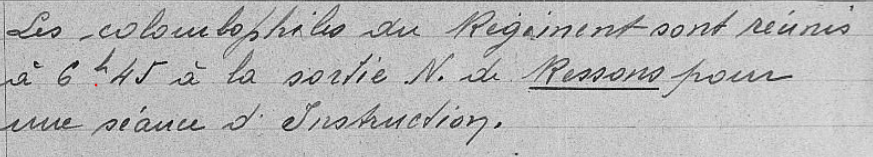 Les colombophiles du Régiment sont réunis
à 6h45 à la sortie N. de Ressons pour
une séance d'Instruction.